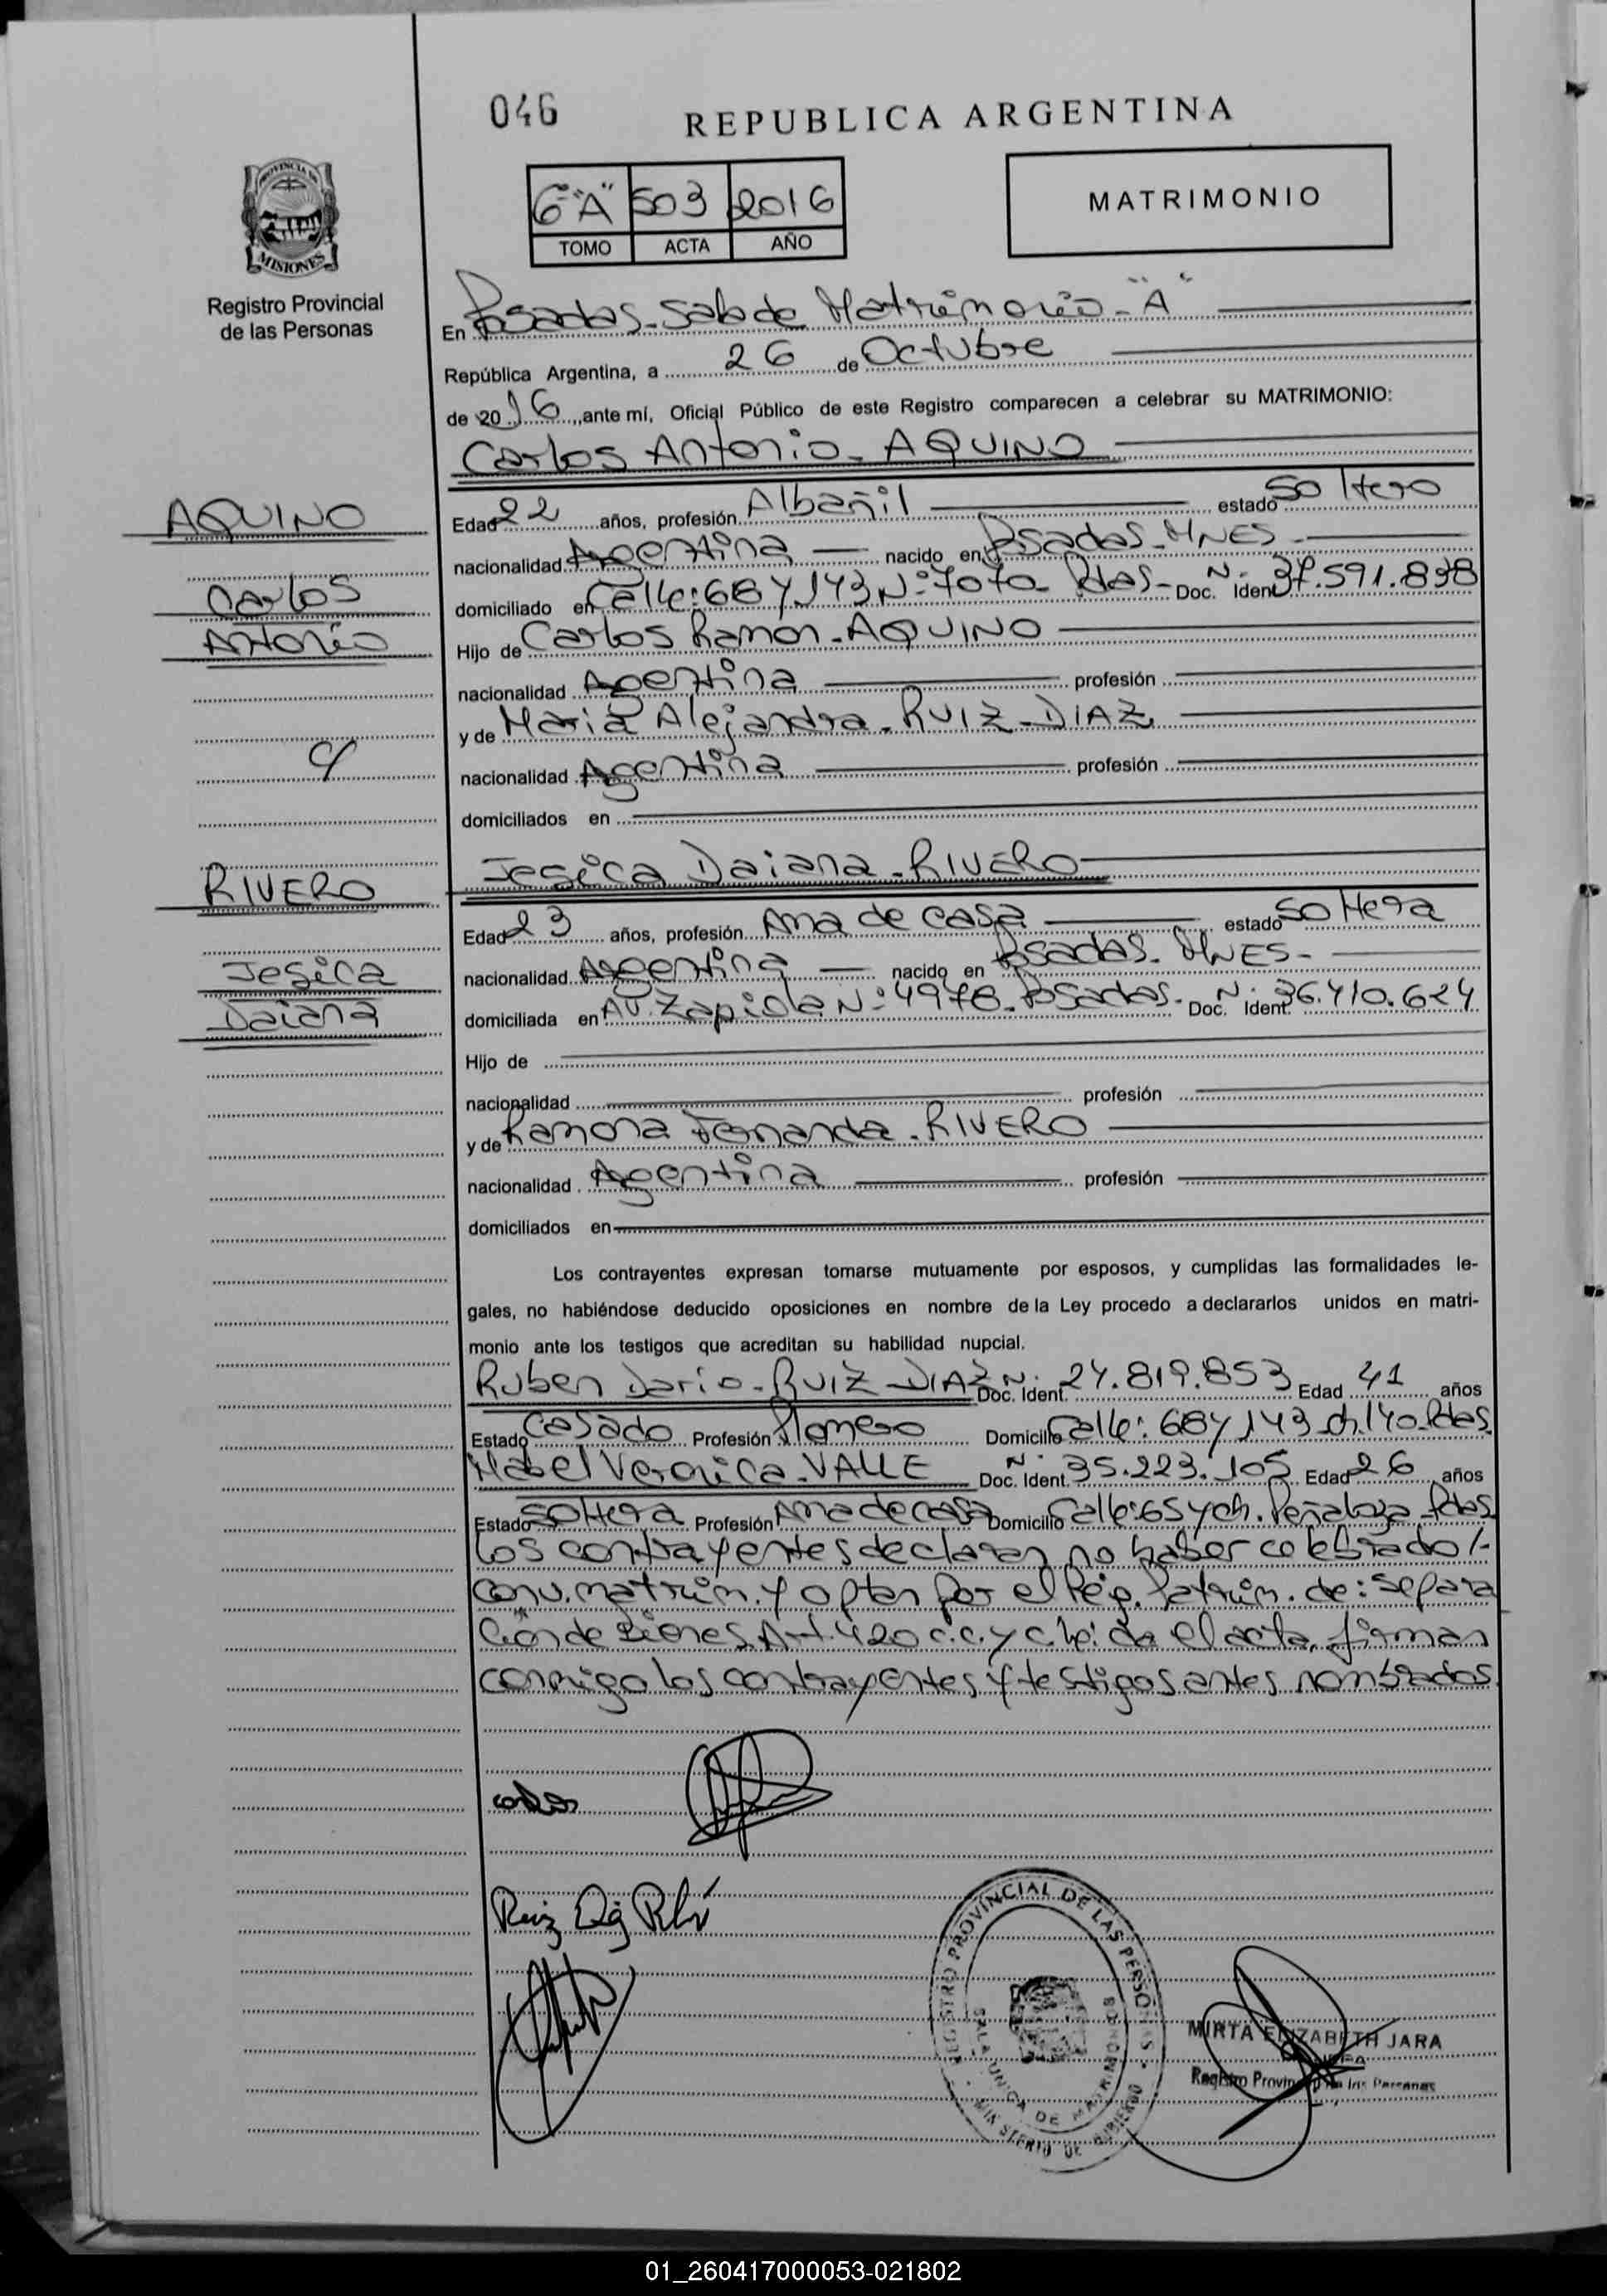 046
REPUBLICA ARGENTINA
6º "A" 503 2016
TOMO ACTA AÑO
MATRIMONIO
PROVINCIA DE
MISIONES
Registro Provincial
de las Personas
En Posadas - Sala de Matrimonio - "A"
República Argentina, a 26 de Octubre
de 2016, ante mí, Oficial Público de este Registro comparecen a celebrar su MATRIMONIO:
Carlos Antonio - AQUINO
AQUINO
Carlos
Antonio
Edad 22 años, profesión Albañil estado Soltero
nacionalidad Argentina nacido en Posadas - MNES -
domiciliado en Calle: 68 y 143 Nº 7070 - Pdas - Doc. Nº Ident. 37.591.838
Hijo de Carlos Ramon - AQUINO
nacionalidad Argentina profesión
y de Maria Alejandra - RUIZ - DIAZ
c/
nacionalidad Argentina profesión
domiciliados en
Jesica Daiana - RIVERO
RIVERO
Jesica
Daiana
Edad 23 años, profesión Ama de casa estado Soltera
nacionalidad Argentina nacido en Posadas - MNES -
domiciliada en AV. Zapiola Nº 4978 - Posadas - Doc. Nº Ident. 36.410.624
Hijo de
nacionalidad profesión
y de Ramona Fernanda - RIVERO
nacionalidad Argentina profesión
domiciliados en
Los contrayentes expresan tomarse mutuamente por esposos, y cumplidas las formalidades le-
gales, no habiéndose deducido oposiciones en nombre de la Ley procedo a declararlos unidos en matri-
monio ante los testigos que acreditan su habilidad nupcial.
Ruben Dario - RUIZ - DIAZ Doc. Nº Ident. 24.819.853 Edad 41 años
Estado Casado Profesión Plomero Domicilio Calle: 68 y 143 ch. 140 - Pdas.
Mabel Veronica - VALLE Doc. Nº Ident. 35.223.105 Edad 26 años
Estado Soltera Profesión Ama de casa Domicilio Calle: 65 y ch. Peñaloza - Pdas
Los contrayentes declaran no haber celebrado /-
conv. matrim. y optan por el Rég. Patrim. de: Separa
ción de Bienes. Art. 420 c.c. y c. leída el acta, firman
conmigo los contrayentes y testigos antes nombrados
Ruiz
REGISTRO PROVINCIAL DE LAS PERSONAS
SALA UNICA DE MATRIMONIOS
MINISTERIO DE GOBIERNO
MIRTA ELIZABETH JARA
Registro Provincial de las Personas
01_260417000053-021802